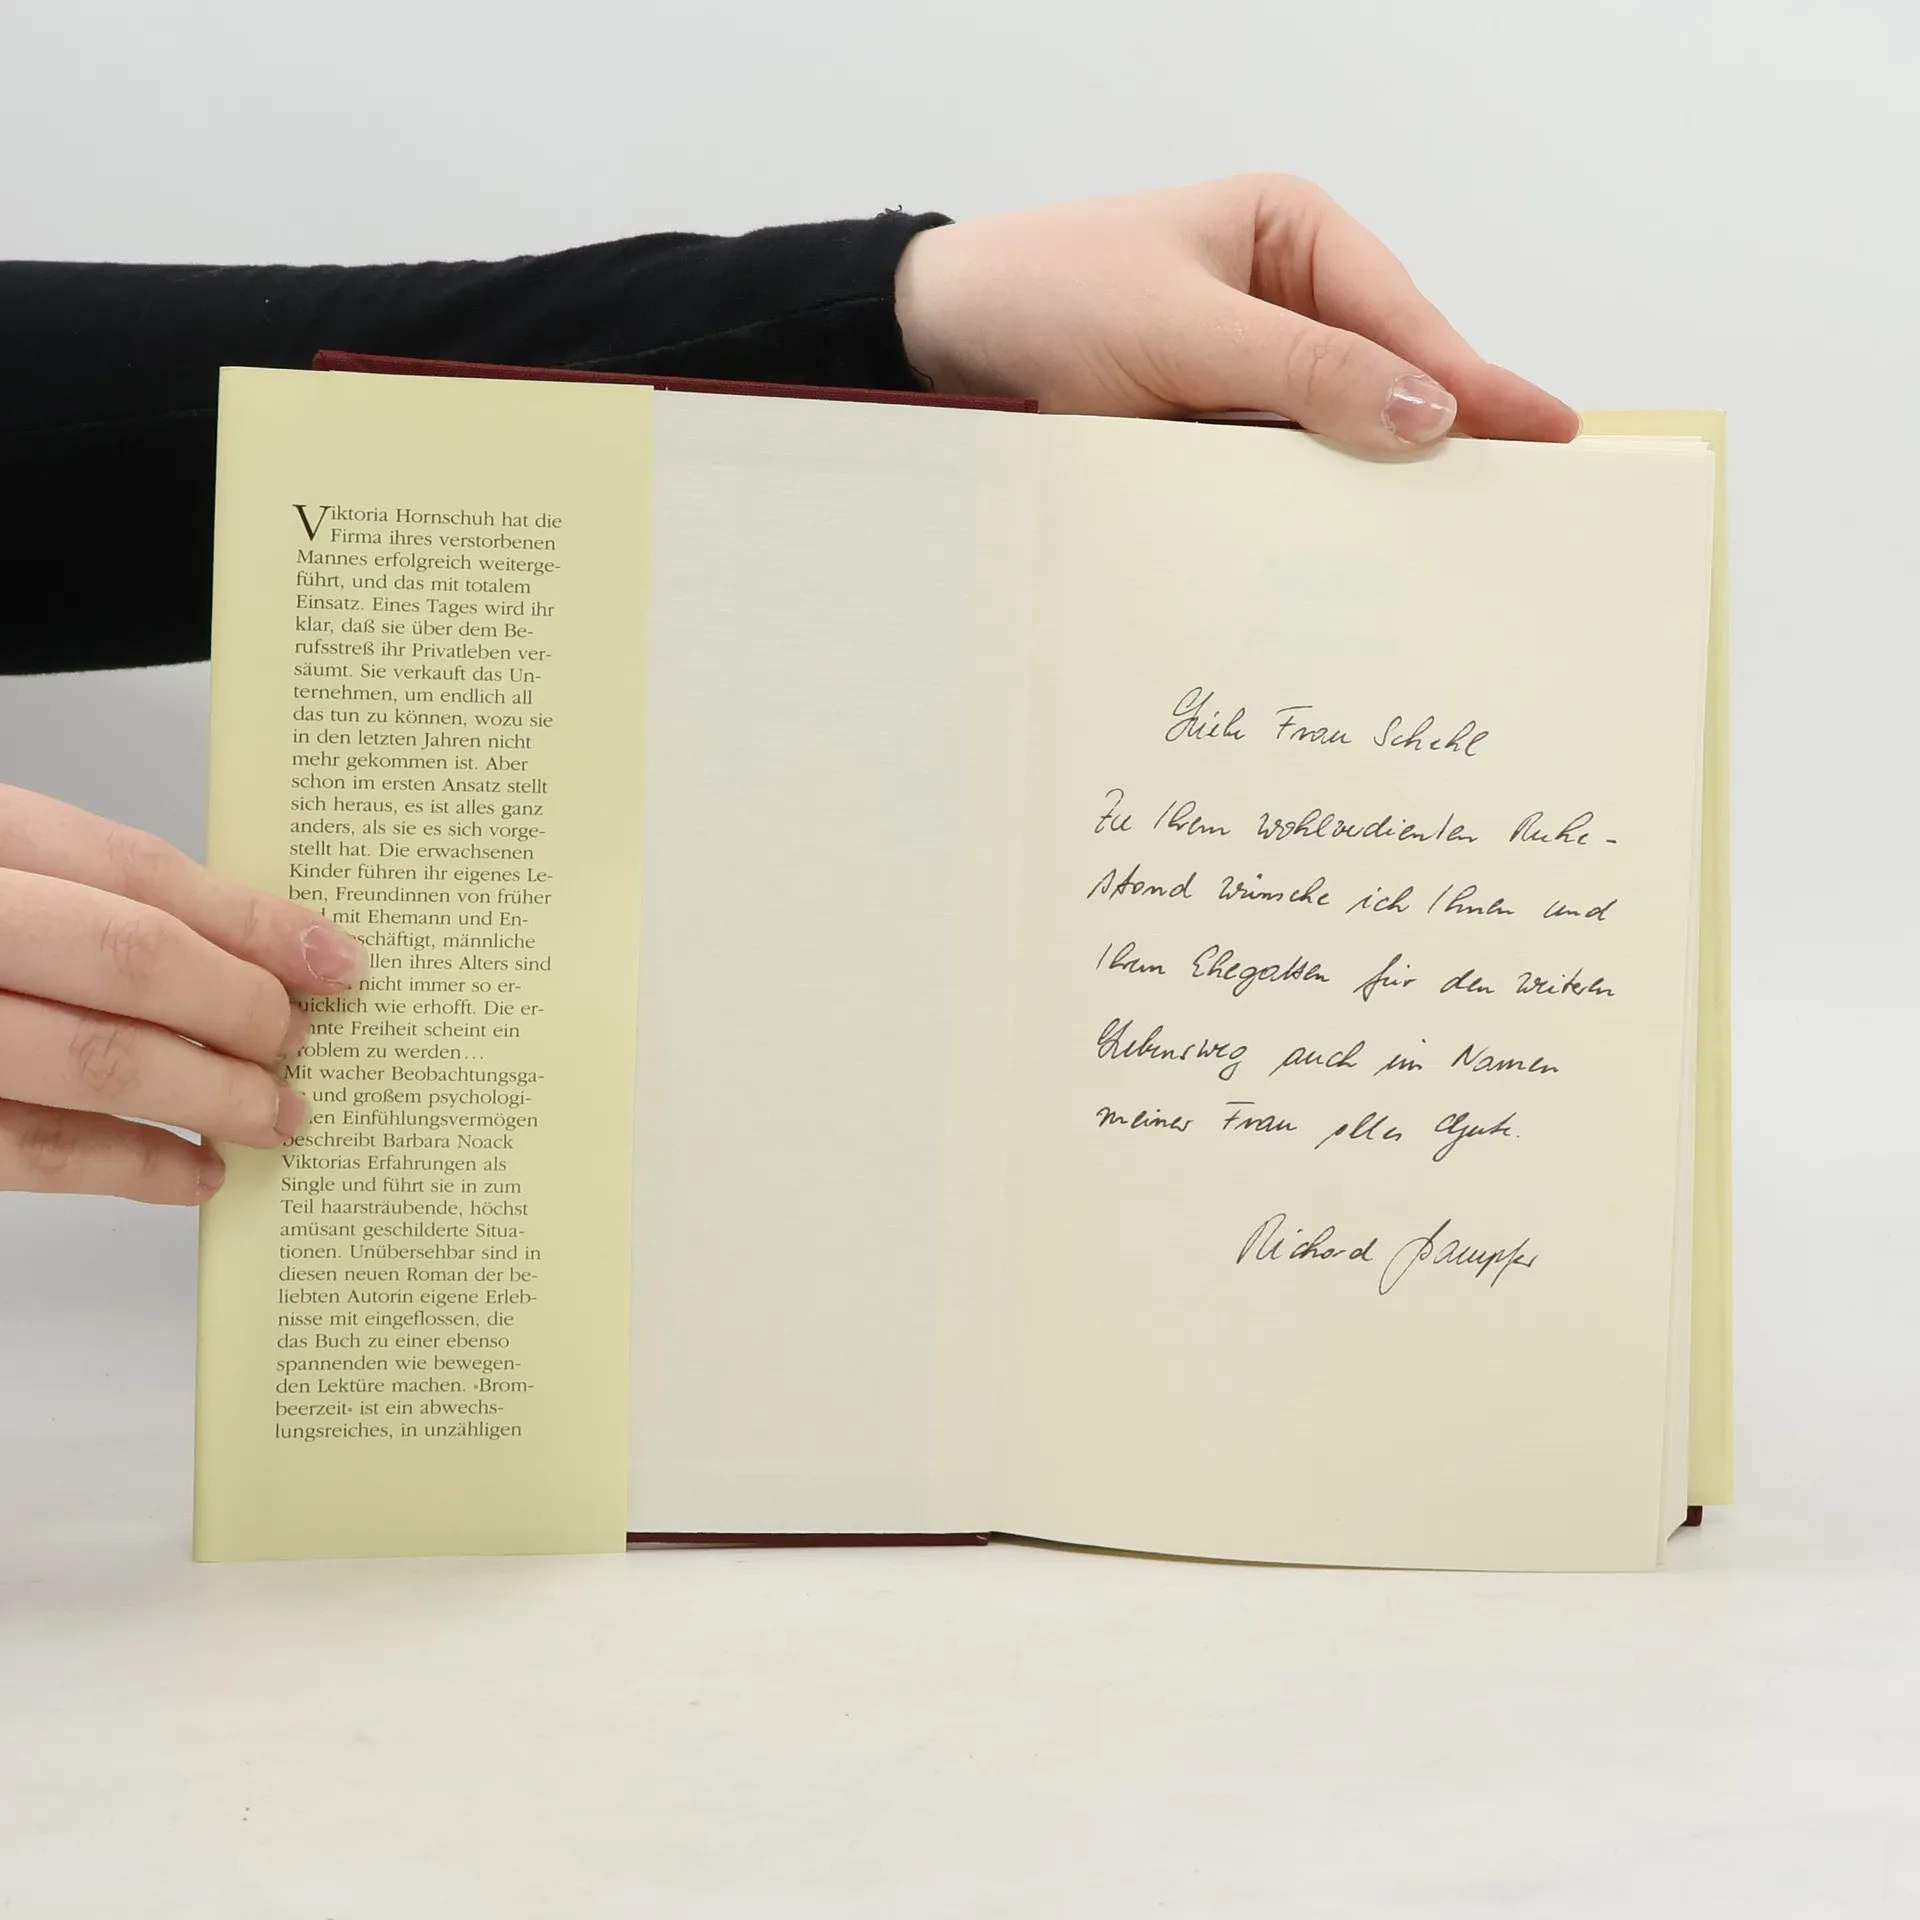 Viktoria Hornschuh hat die
Firma ihres verstorbenen
Mannes erfolgreich weiterge-
führt, und das mit totalem
Einsatz. Eines Tages wird ihr
klar, daß sie über dem Be-
rufsstreß ihr Privatleben ver-
säumt. Sie verkauft das Un-
ternehmen, um endlich all
das tun zu können, wozu sie
in den letzten Jahren nicht
mehr gekommen ist. Aber
schon im ersten Ansatz stellt
sich heraus, es ist alles ganz
anders, als sie es sich vorge-
stellt hat. Die erwachsenen
Kinder führen ihr eigenes Le-
ben, Freundinnen von früher
mit Ehemann und En-
schäftigt, männliche
llen ihres Alters sind
nicht immer so er-
quicklich wie erhofft. Die er-
nnte Freiheit scheint ein
roblem zu werden...
Mit wacher Beobachtungsga-
und großem psychologi-
en Einfühlungsvermögen
beschreibt Barbara Noack
Viktorias Erfahrungen als
Single und führt sie in zum
Teil haarsträubende, höchst
amüsant geschilderte Situa-
tionen. Unübersehbar sind in
diesen neuen Roman der be-
liebten Autorin eigene Erleb-
nisse mit eingeflossen, die
das Buch zu einer ebenso
spannenden wie bewegen-
den Lektüre machen. »Brom-
beerzeit« ist ein abwechs-
lungsreiches, in unzähligen
Liebe Frau Schehl
Zu Ihrem wohlverdienten Ruhe-
stand wünsche ich Ihnen und
Ihrem Ehegatten für den weiteren
Lebensweg auch im Namen
meiner Frau alles Gute.
Richard